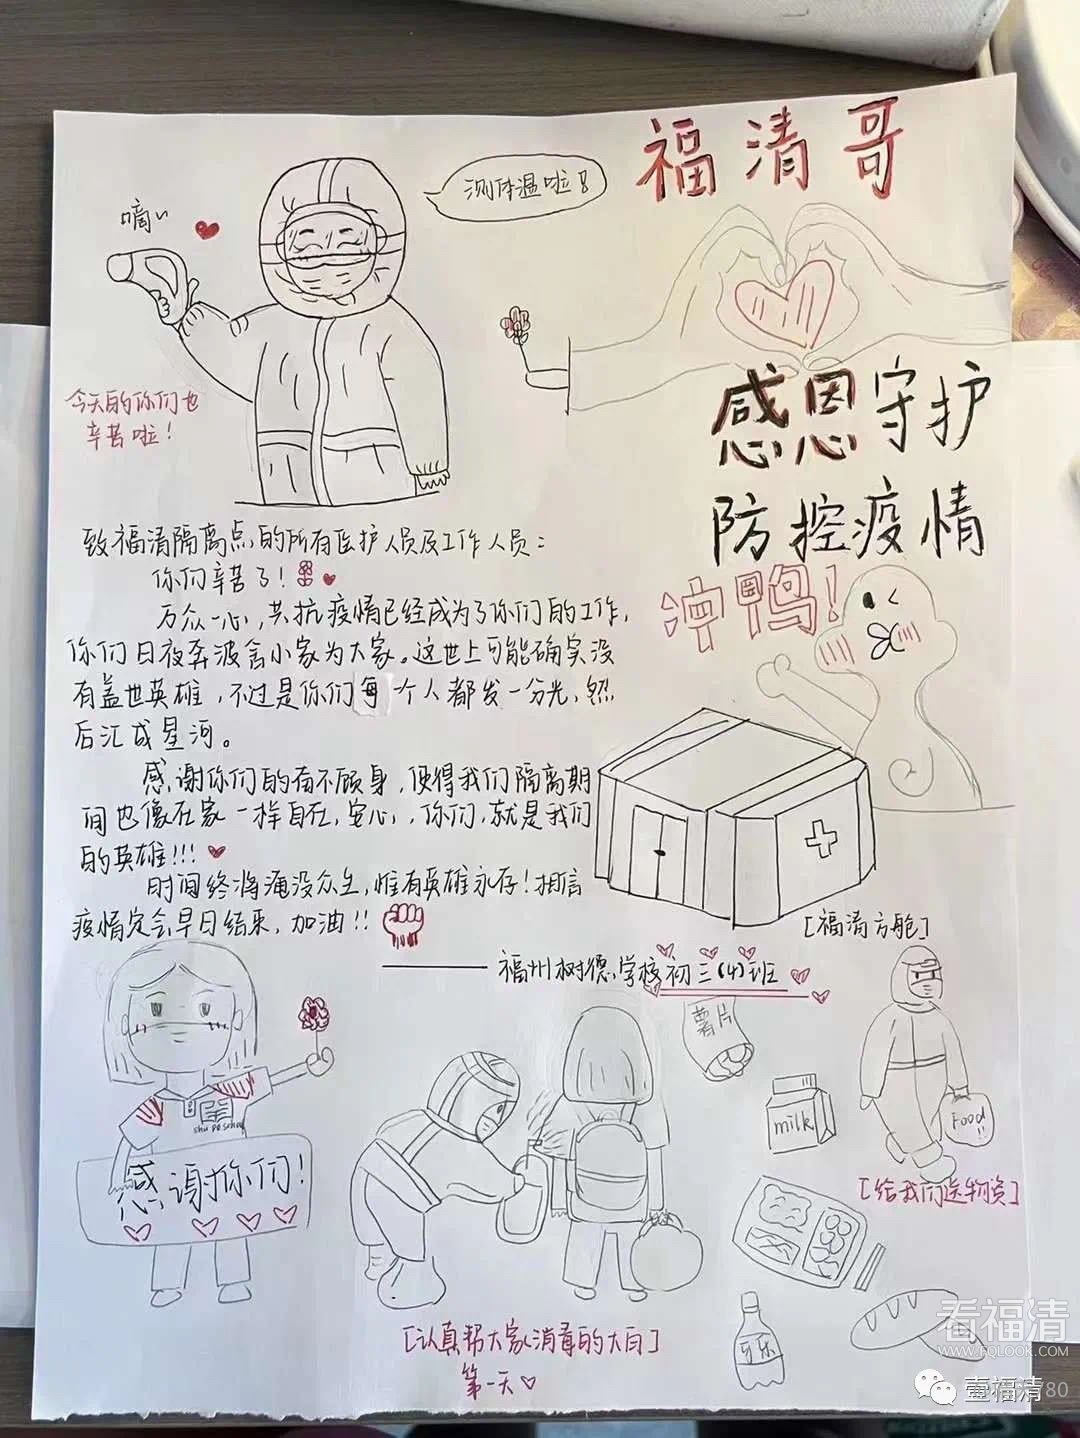 福清哥
测体温啦！
嘀~
今天的你们也
辛苦啦！
感恩守护
防控疫情
冲鸭！
致福清隔离点的所有医护人员及工作人员：
你们辛苦了！
万众一心，共抗疫情已经成为了你们的工作，
你们日夜奔波舍小家为大家。这世上可能确实没
有盖世英雄，不过是你们每一个人都发一分光，然
后汇成星河。
感谢你们的奋不顾身，使得我们隔离期
间也像在家一样自在，安心，你们，就是我们
的英雄!!!
时间终将淹没众生，惟有英雄永存！相信
疫情定会早日结束，加油!!
[福清方舱]
——福州树德学校初三(4)班
薯片
milk
Food!!
[给我们送物资]
shu de school
感谢你们！
[认真帮大家消毒的大白]
第一天
可乐
看福清
WWW.FQLOOK.COM
壹福清80